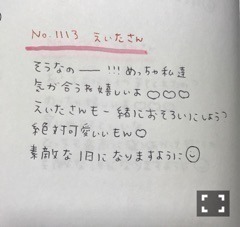 No.1113 えいたさん
そうなのー!!!めっちゃ私達
気が合うね嬉しいよ♡♡♡
えいたさんも一緒におそろいにしよう?
絶対可愛いもん♡
素敵な1日になりますように☺